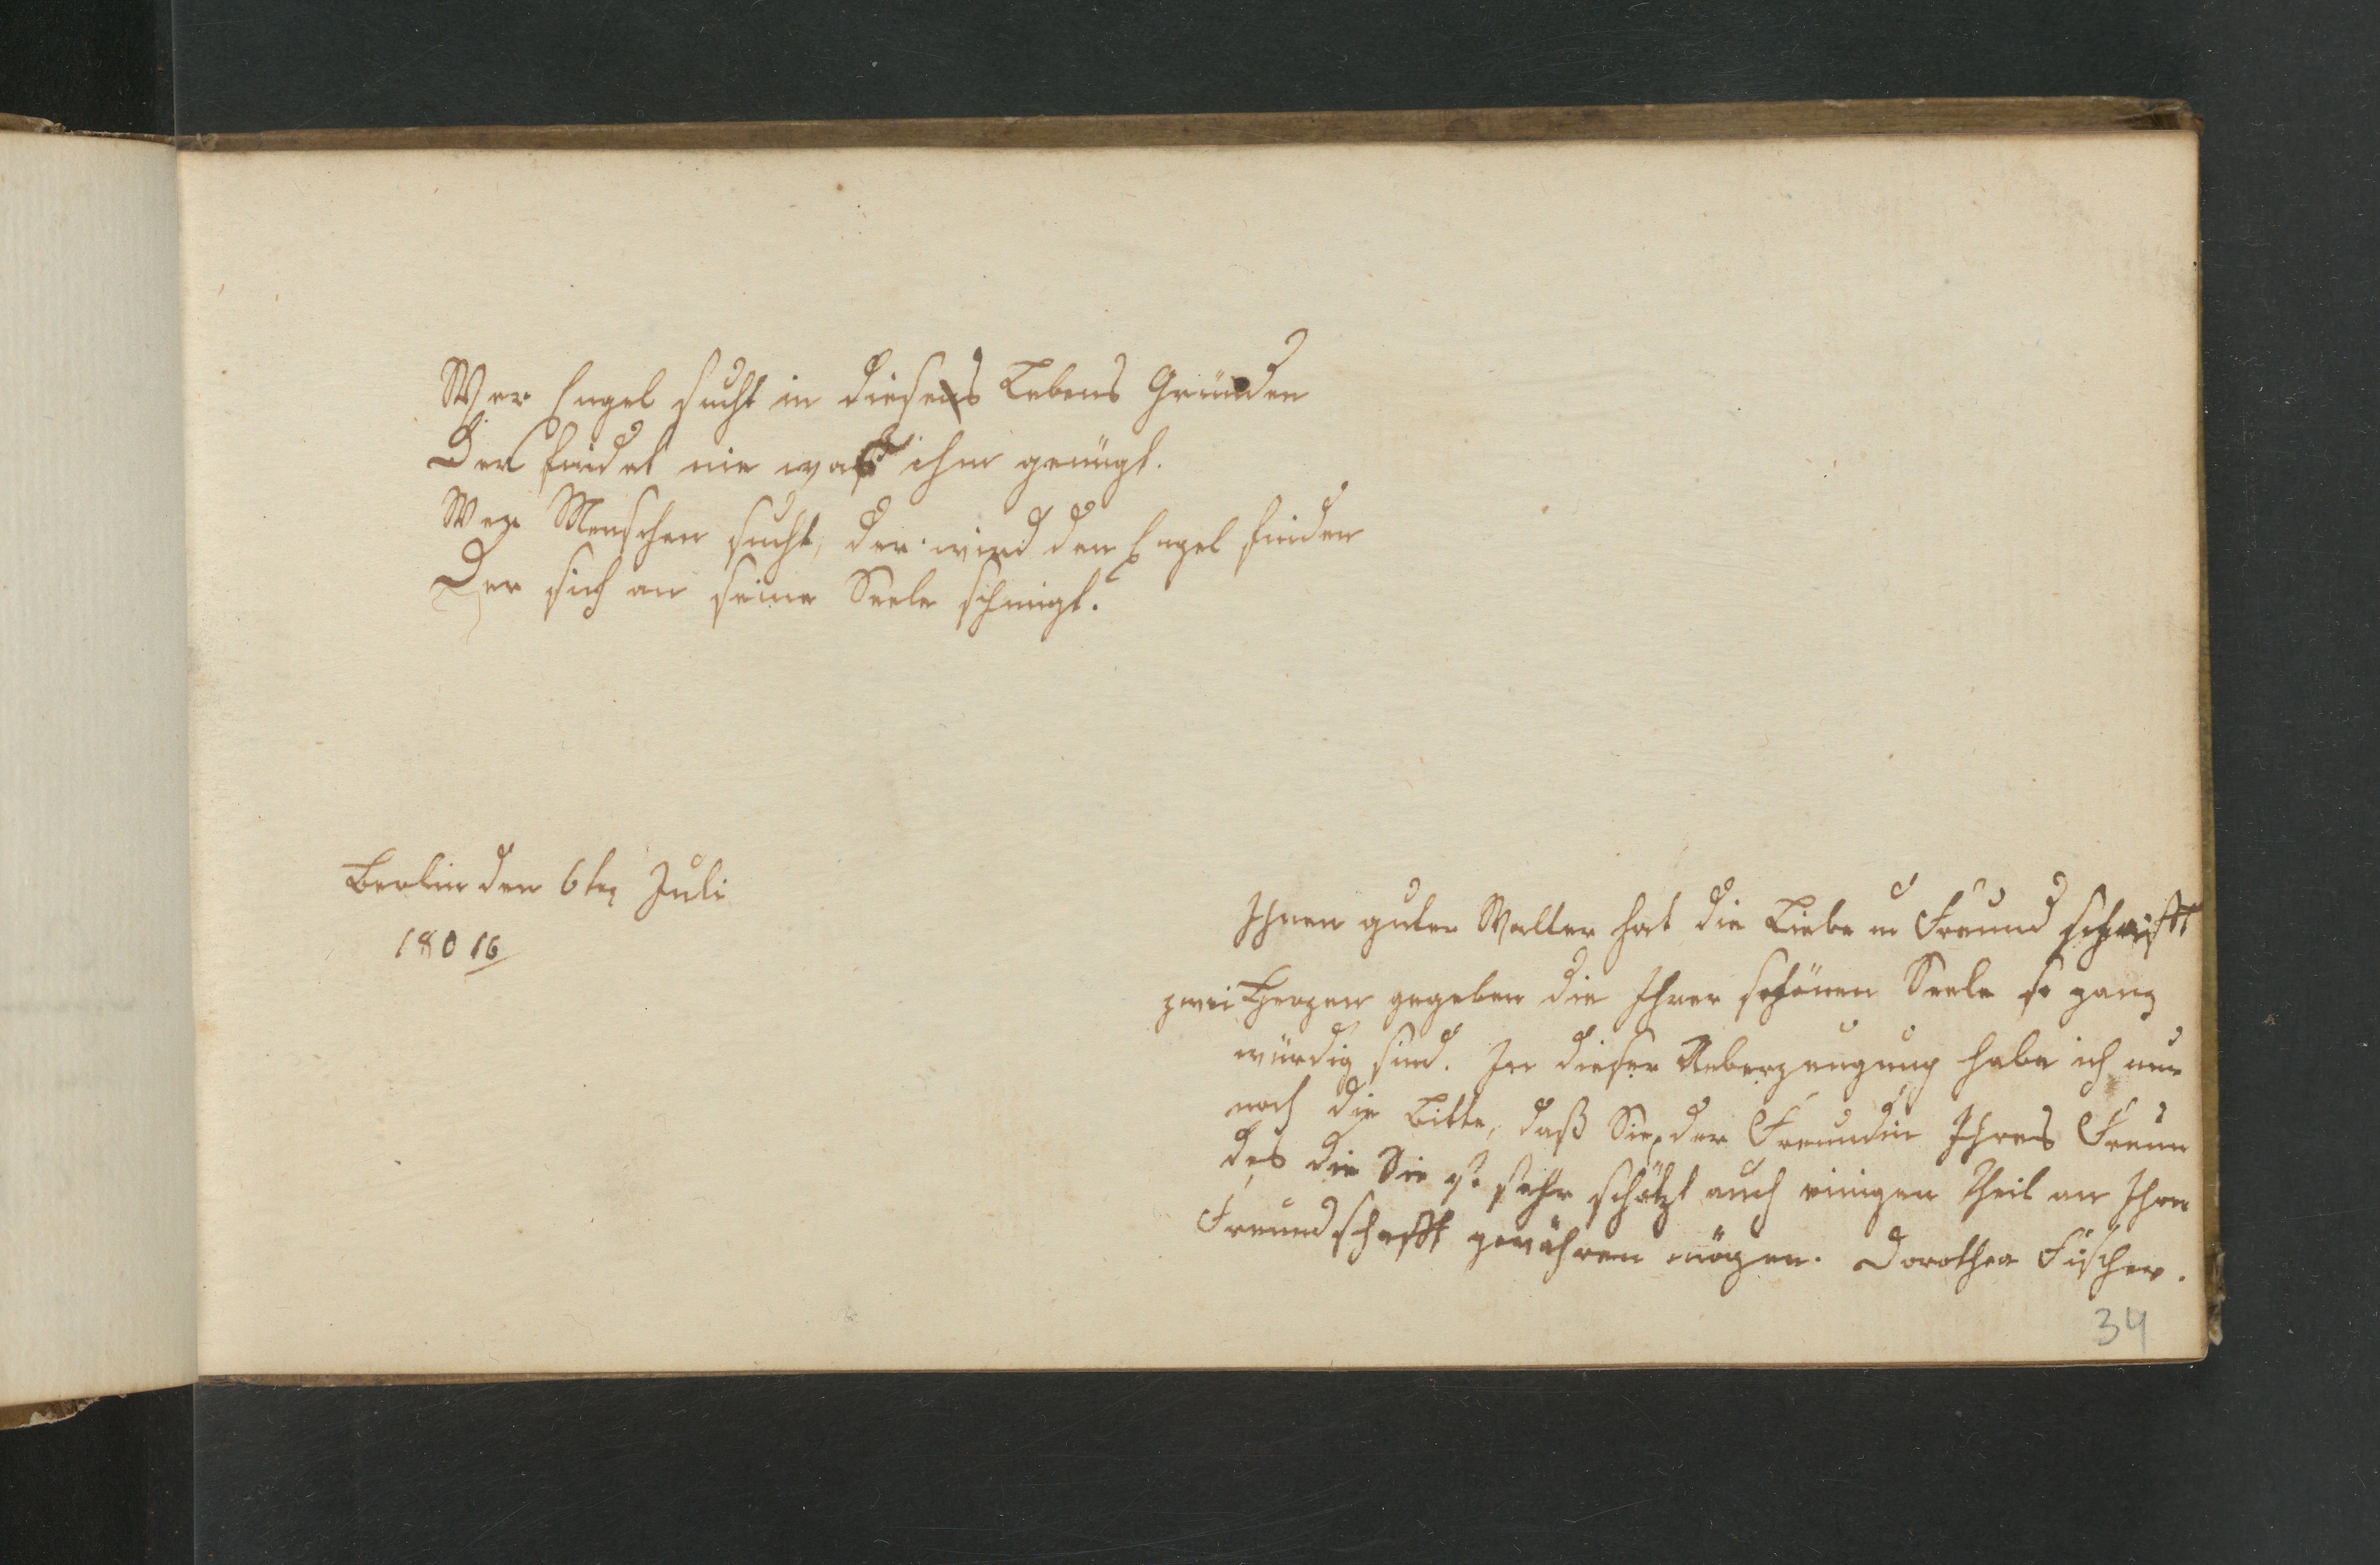 Wer Engel sucht in dieses Lebens Gründen
Der findet nie was ihm genügt.
Wer Menschen sucht, der wird den Engel finden
Der sich an seine Seele schmigt.
Berlin den 6ten Juli
180 16
Ihnen guter Walter hat die Liebe u Freundschafft
zwei Herzen gegeben die Ihrer schönen Seele so ganz
würdig sind. In dieser Ueberzeugung habe ich nur
noch die Bitte, daß Sie, der Freundin Ihres Freun
des die Sie so sehr schätzt auch einigen Theil an Ihre
Freundschafft gewähren mögen. Dorothea Fischer.
34